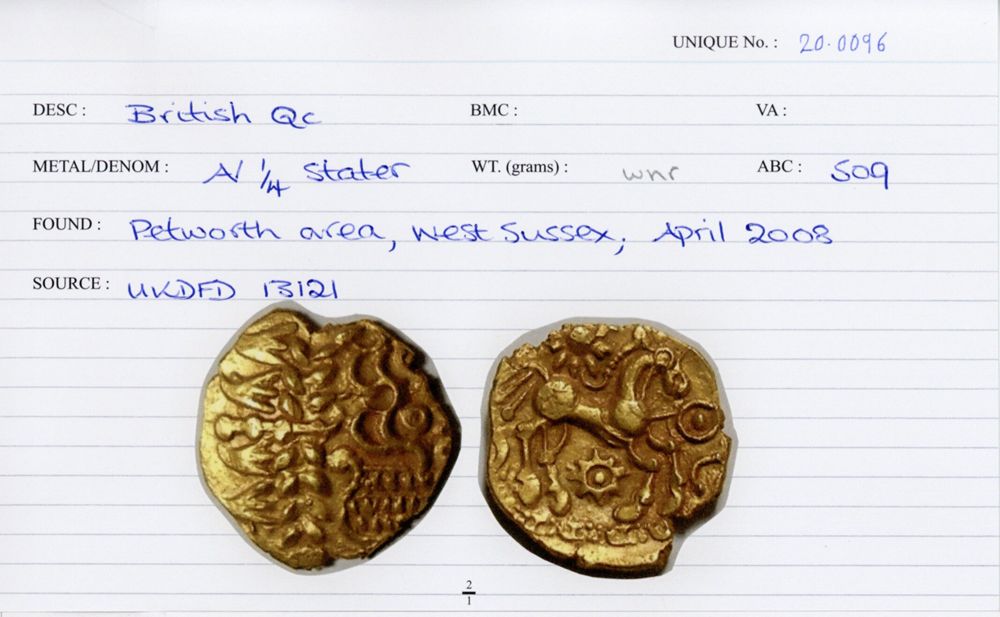 UNIQUE No.: 20.0096
DESC: British Qc BMC: VA:
METAL/DENOM: A/ 1/4 Stater WT. (grams): wnr ABC: 509
FOUND: Petworth area, West Sussex, April 2008
SOURCE: UKDFD 13121
2
1